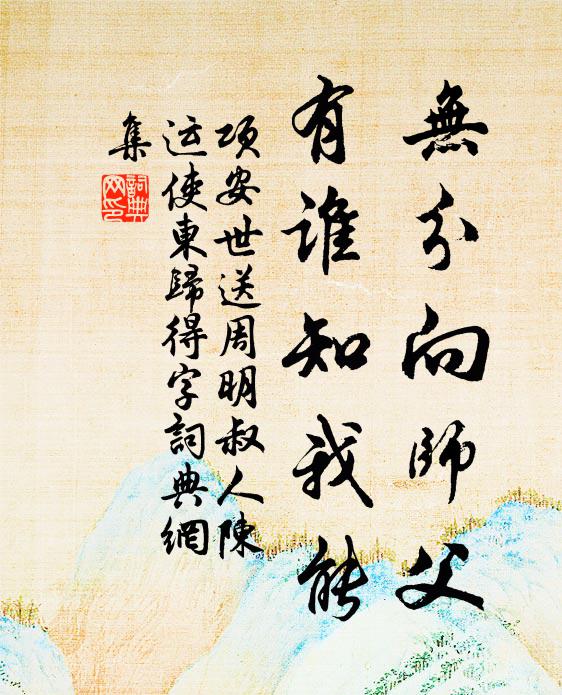 無分向師父
有谁知我能
项安世送周明叔人陳
运使東歸得字詞典網
集
詞典
网印